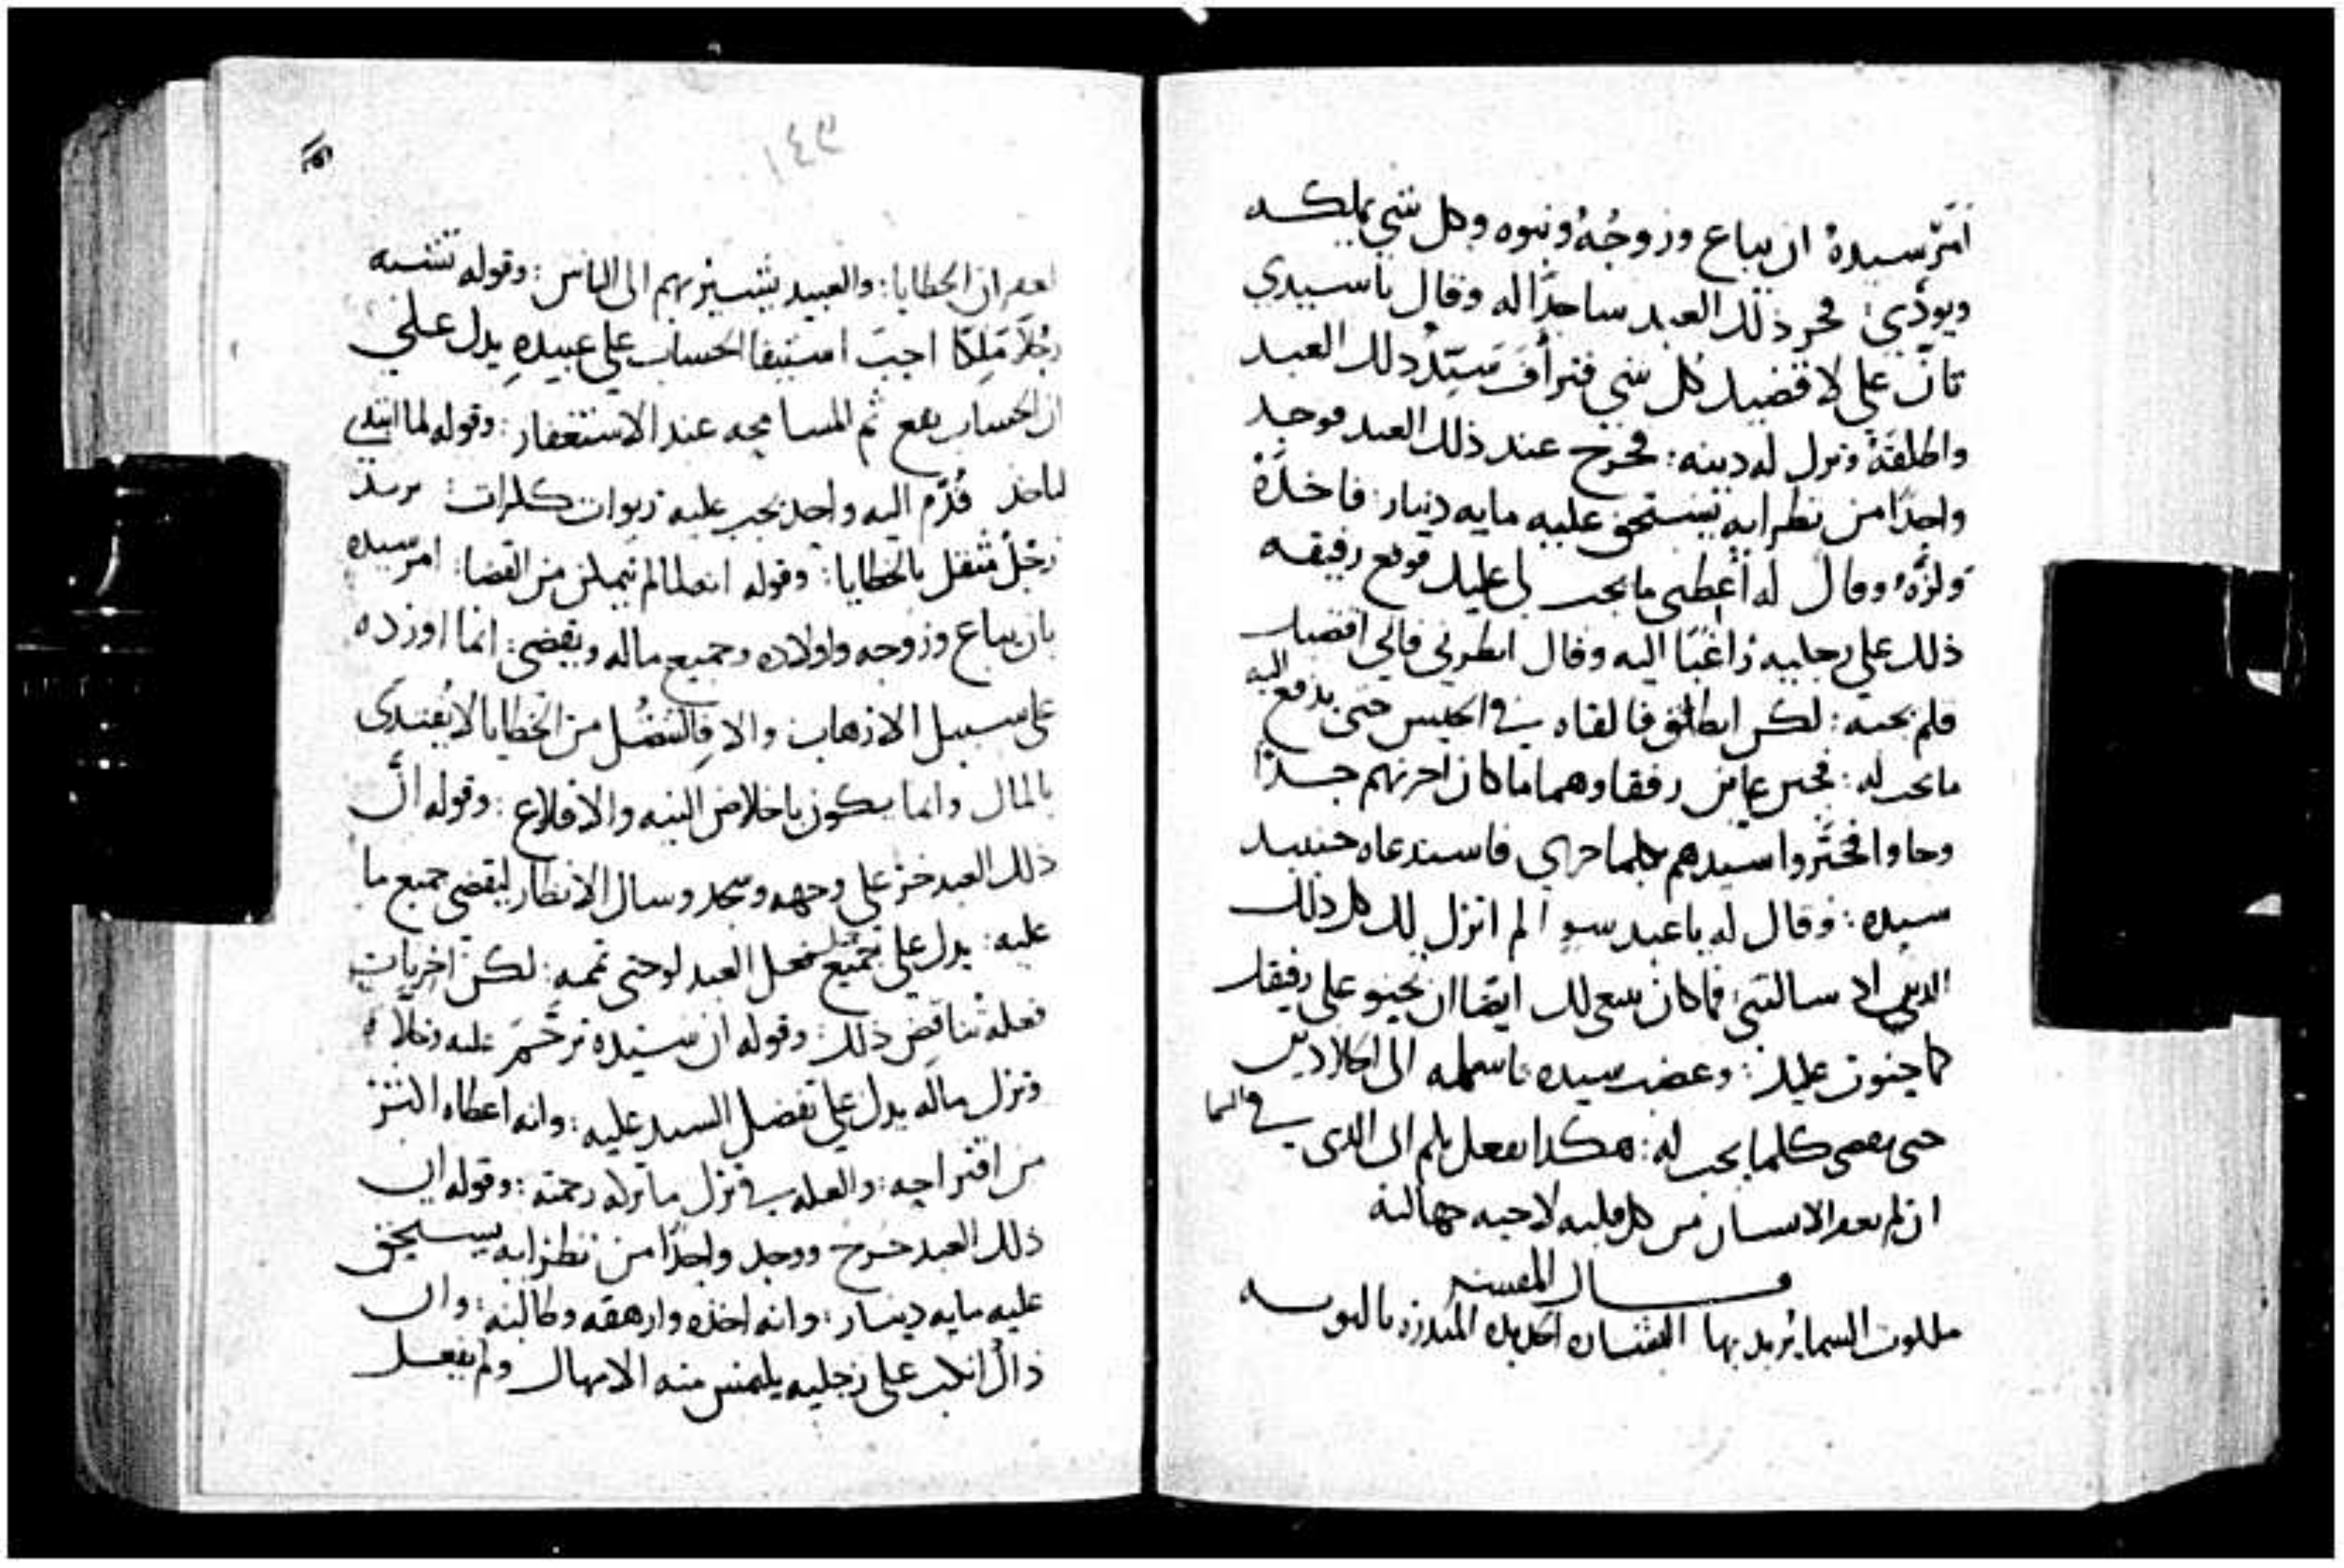 أمر سيده ان يباع وزوجه وبنوه وكل شي يملكه
ويودي: فخر ذلك العبد ساجدا له وقال يا سيدي
تان علي لاقضيك كل شي فتراف سيد ذلك العبد
واطلقه وترك له دينه: فخرج عند ذلك العبد فوجد
واحدا من نظرايه يستحق عليه مايه دينار: فاخذه
ولزه وقال له أعطني ما يجب لي عليك فوقع رفيقه
ذلك على رجليه راغبا اليه وقال انظرني فاني اقضيك
فلم يجبه: لكن انطلق فالقاه في الحبس حتى يدفع اليه
ما يجب له: فحين عاين رفقاوهما ما كان احزنهم جدا
وجاوا فخبروا سيدهم بكلما جرى فاستدعاه حينيد
سيده: وقال له يا عبد سو الم اترك لك كل ذلك
الدين اذ سالتني فما كان ينبغي لك ايضا ان تحنو على رفيقك
كما حنوت عليك: وغضب سيده فاسلمه الى الجلادين
حتى يقضي كلما يجب له: هكذا يفعل بكم ابي الذي في السما
ان لم يغفر الانسان من كل قلبه لاخيه جهالته
قال المفسر
ملكوت السما يريد بها البشاره الجديده المنذره بالتوبه
١٤٣
لغفران الخطايا: والعبيد يشير بهم الى الناس: وقوله تشبه
رجلا ملكا احب استيفا الحساب على عبيده يدل على
ان الحساب يقع ثم المسامحه عند الاستغفار: وقوله لما ابتدى
لياخذ قدم اليه واحد يجب عليه ربوات ككرات: يريد
رجل مثقل بالخطايا: وقوله انه لما لم يتمكن من القضا: امر سيده
بان يباع وزوجه واولاده وجميع ماله ويقضي: انما اورده
على سبيل الارهاب والا فالتنصل من الخطايا لا يفتدى
بالمال وانما يكون باخلاص النيه والاقلاع: وقوله ان
ذلك العبد خر على وجهه وسجد وسال الانظار ليقضي جميع ما
عليه: يدل على جميل فعل العبد لو حتى تممه: لكن اخريات
فعله تناقض ذلك: وقوله ان سيده ترحم عليه وخلاه
وترك ماله يدل على تفضل السيد عليه: وانه اعطاه اكثر
من اقتراحه: والعله في ترك ما تركه رحمته: وقوله ان
ذلك العبد خرج ووجد واحدا من نظرايه يستحق
عليه مايه دينار: وانه اخذه وارهقه وطالبه: وان
ذاك انكب على رجليه يلتمس منه الامهال ولم يفعل